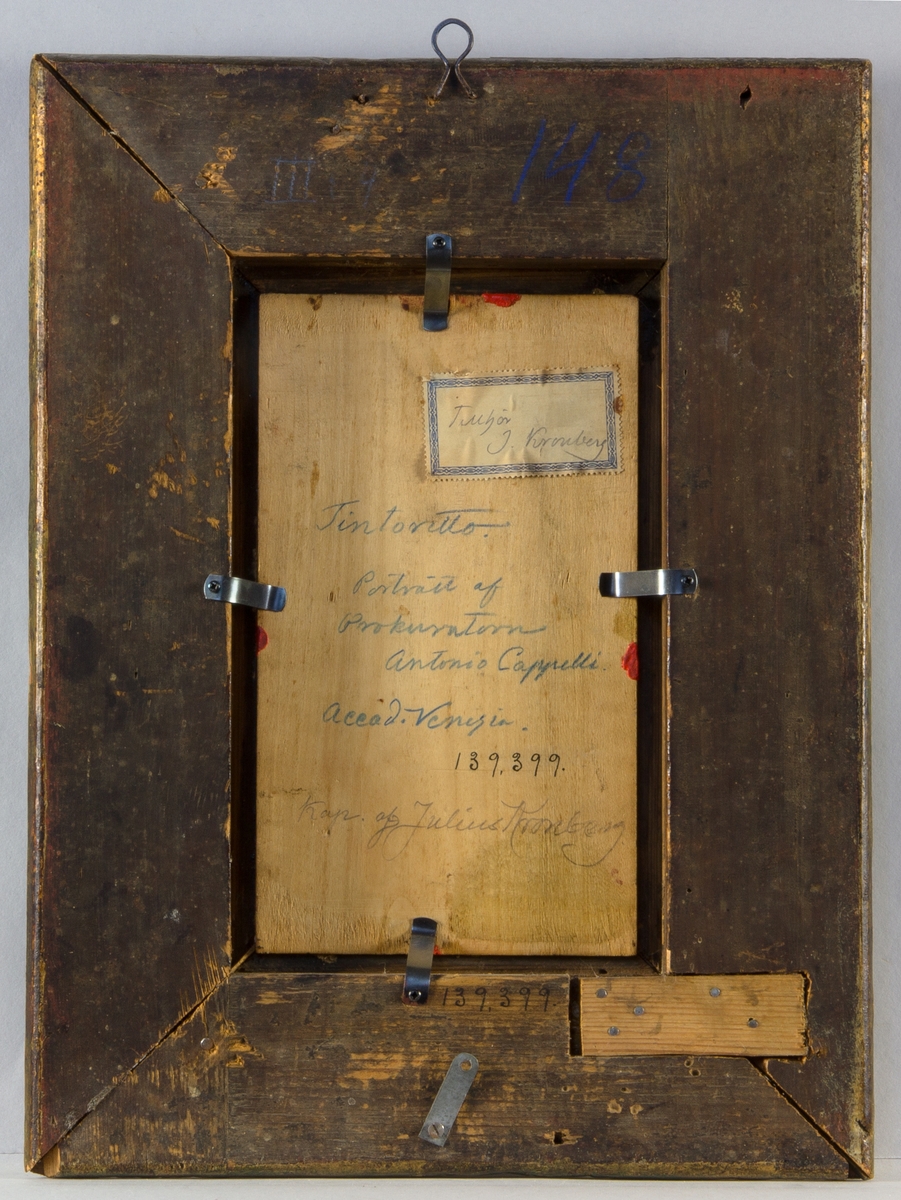 148
III
Tillhör
J. Kronberg
Tintoretto.
Porträtt af
Prokuratorn
Antonio Cappelli.
Accad. Venezia.
139,399.
Kop. af Julius Kronberg
139,399.